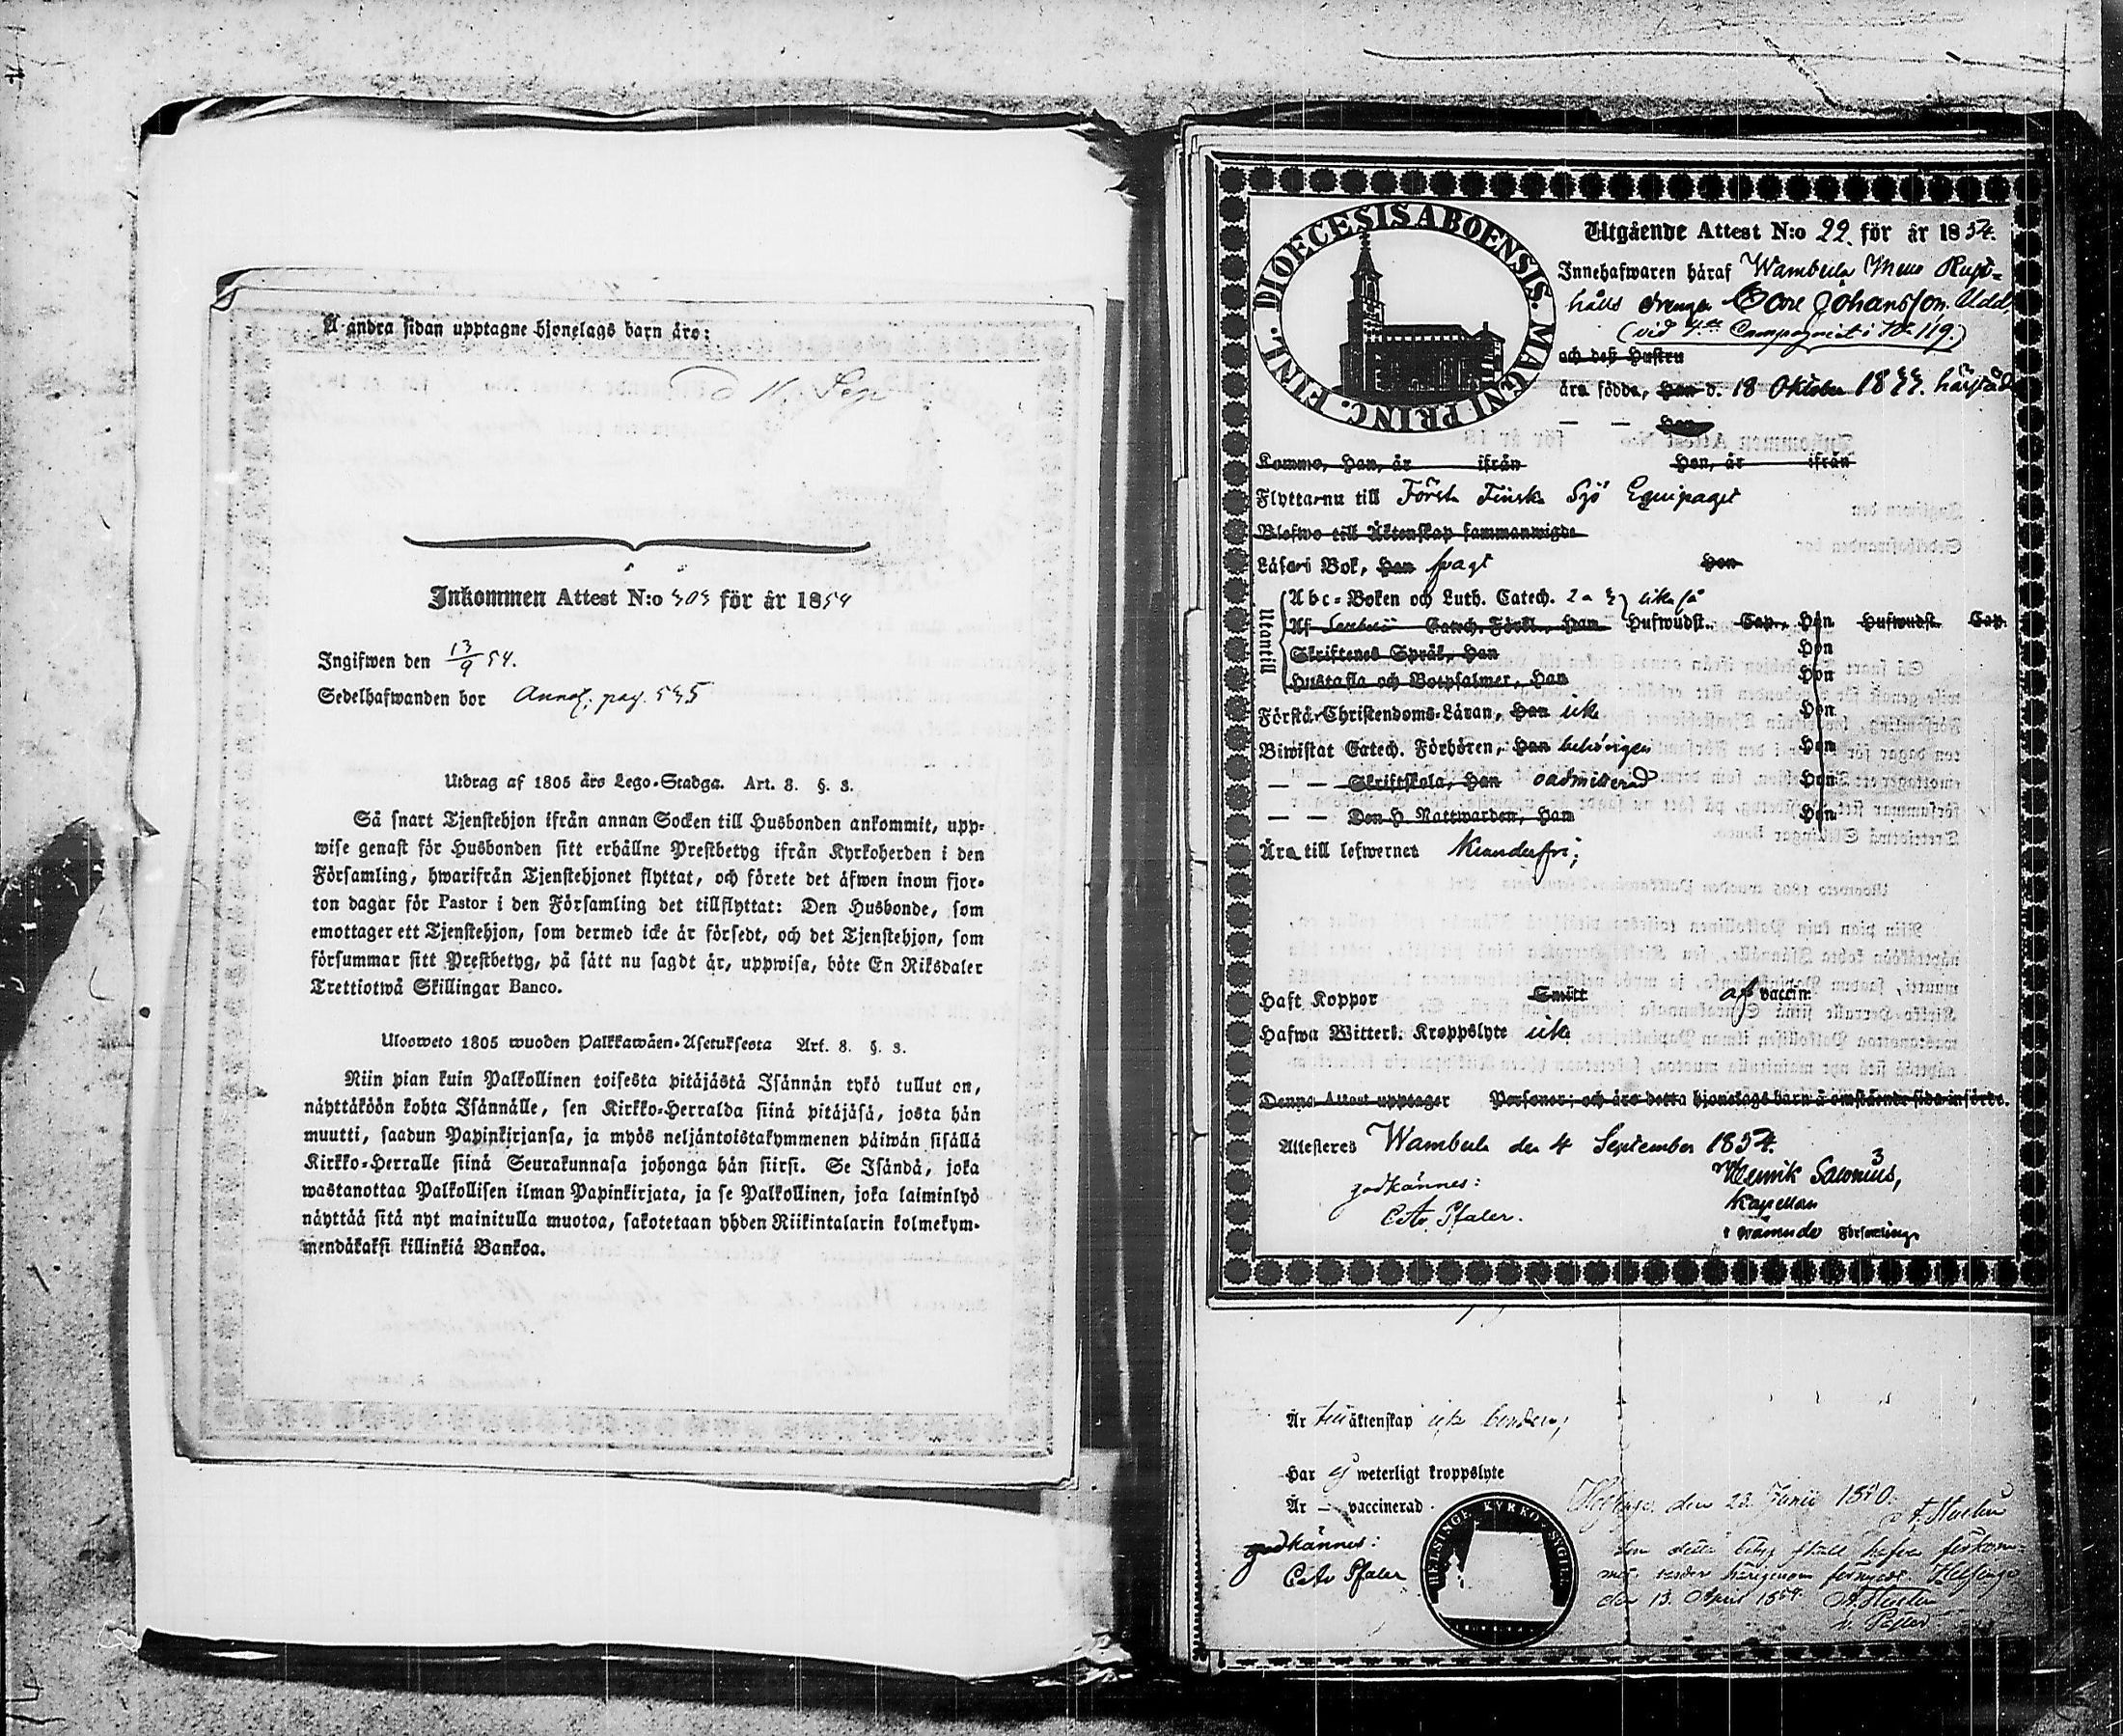 Å andra sidan upptagne hjonelags barn äro:
d 11 Sep
Inkommen Attest N:o 303 för år 1854
Ingifwen den 13/9 54.
Sedelhafwanden bor Annot. pag. 535
Utdrag af 1805 års Lego-Stadga. Art. 8. §. 3.
Så snart Tjenstehjon ifrån annan Socken till Husbonden ankommit, upp-
wise genast för Husbonden sitt erhållne Prestbetyg ifrån Kyrkoherden i den
Församling, hwarifrån Tjenstehjonet flyttat, och förete det äfwen inom fjor-
ton dagar för Pastor i den Församling det tillflyttat: Den Husbonde, som
emottager ett Tjenstehjon, som dermed icke är försedt, och det Tjenstehjon, som
försummar sitt Prestbetyg, på sätt nu sagdt är, uppwisa, böte En Riksdaler
Trettiotwå Skillingar Banco.
Uloswето 1805 wuoden Palkkawäen-Asetuksesta Art. 8. §. 3.
Niin pian kuin Palkollinen toisesta pitäjästä Isännän tykö tullut on,
näyttäköön kohta Isännälle, sen Kirkko-Herralda siinä pitäjäsä, josta hän
muutti, saadun Papinkirjansa, ja myös neljäntoistakymmenen päiwän sisällä
Kirkko-Herralle siinä Seurakunnasa johonga hän siirsi. Se Isändä, joka
wastanottaa Palkollisen ilman Papinkirjata, ja se Palkollinen, joka laiminlyö
näyttää sitä nyt mainitulla muotoa, sakotetaan yhden Riikintalarin kolmekym-
mendäkaksi killinkiä Bankoa.
DIOECESIS ABOENSIS. MAGNI PRINC. FINL.
Utgående Attest N:o 22. för år 1854.
Innehafwaren häraf Wambula
hålls drengen Johansson
(vid 4de Compagniet i No 119.)
och deß Hustru
äro födde, Han d. 18 Oktober 1833. härstäd
— — Hon
Kommo, Han, år ifrån Hon, år ifrån
Flyttarnu till Första Finska Sjö Equipaget
Blefwo till Äktenskap sammanwigde
Läser i Bok, Han swagt Hon
Utantill
Abc-Boken och Luth. Catech. 2 a 3 lika så
Af Catech. Förkl., Han Hufwudst. Cap., Hon Hufwudst. Cap.
Skriftenes Språk, Han Hon
Hustafla och Botpsalmer, Han Hon
Förstå Christendoms-Läran, Han icke Hon
Biwistat Catech. Förhören, Han behörigen Hon
— — Skriftskola, Han oadmitterad Hon
— — Den H. Nattwarden, Han Hon
Äro till lefwernet klanderfri;
Haft Koppor Smitt af vaccin.
Hafwa Witterl. Kroppslyte icke
Denna Attest upptager Personer; och äro detta hjonelags barn å omstående sida införde.
Attesteres Wambula den 4 September 1854.
godkännes: Henrik Salonius,
Pfaler. Kapellan
i Församling
Är till äktenskap icke bunden;
Har ej weterligt kroppslyte
Är — vaccinerad
godkännes:
Pfaler
HELSINGE KYRKO SIGILL
den 23 Junii
den detta betyg skall hafva förkom-
mit, warder härigenom förnyadt. Helsinge
den 13. April 1854.